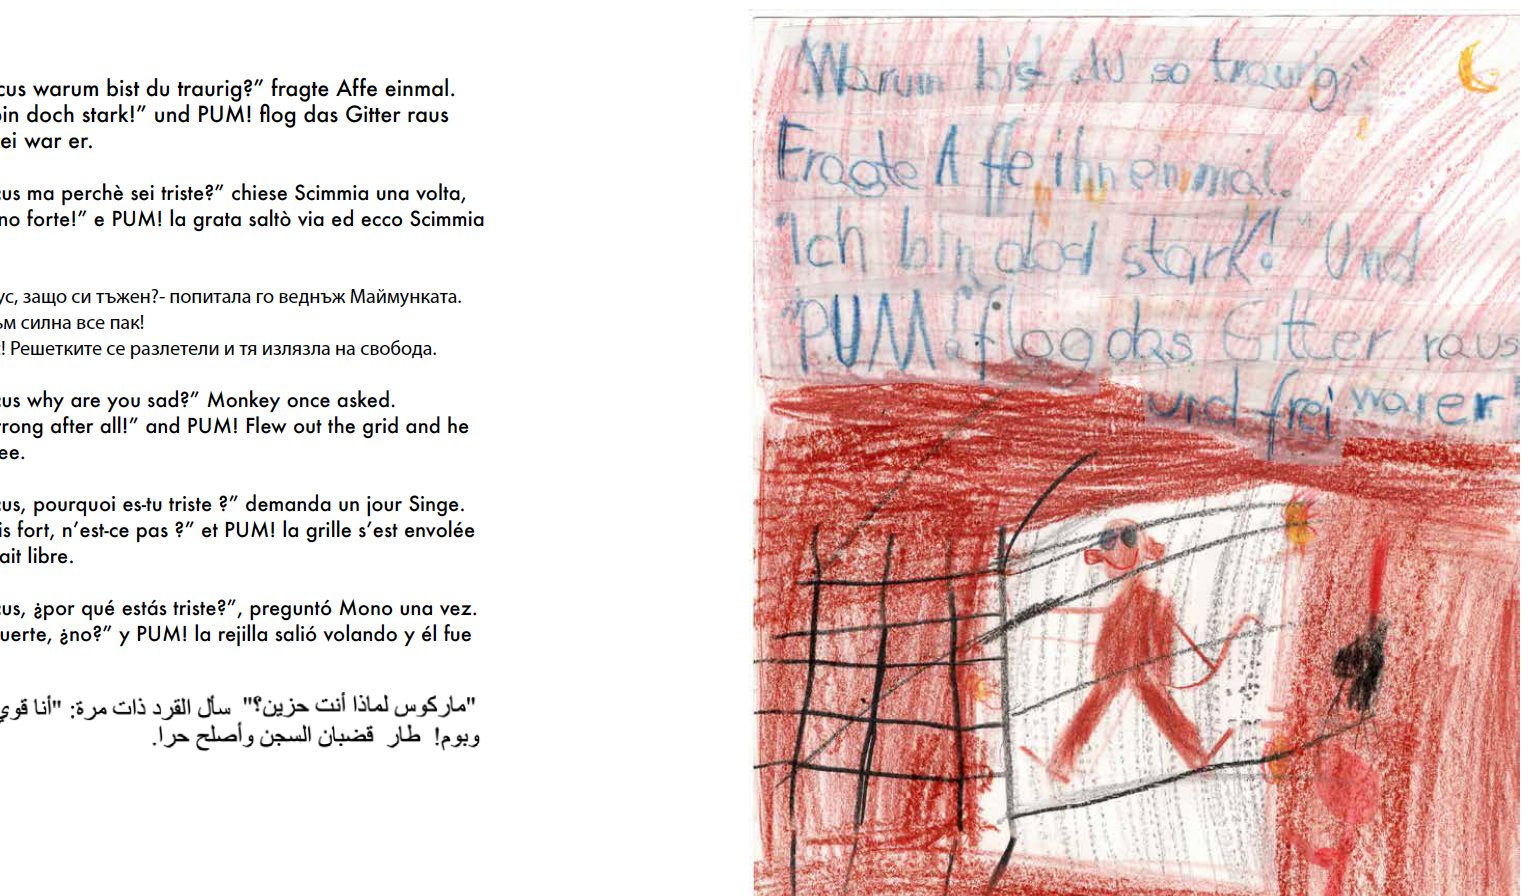 cus warum bist du traurig?” fragte Affe einmal.
bin doch stark!” und PUM! flog das Gitter raus
ei war er.
cus ma perchè sei triste?” chiese Scimmia una volta,
no forte!” e PUM! la grata saltò via ed ecco Scimmia
ус, защо си тъжен?- попитала го веднъж Маймунката.
ъм силна все пак!
! Решетките се разлетели и тя излязла на свобода.
cus why are you sad?” Monkey once asked.
rong after all!” and PUM! Flew out the grid and he
ee.
cus, pourquoi es-tu triste ?” demanda un jour Singe.
is fort, n’est-ce pas ?” et PUM! la grille s’est envolée
ait libre.
cus, ¿por qué estás triste?”, preguntó Mono una vez.
uerte, ¿no?” y PUM! la rejilla salió volando y él fue
"ماركوس لماذا أنت حزين؟" سأل القرد ذات مرة: "أنا قوي
وبوم! طار قضبان السجن وأصلح حرا.
Warum bist du so traurig?"
Fragte Affe ihn einmal.
"Ich bin doch stark!" Und
"PUM!" flog das Gitter raus
und frei war er!